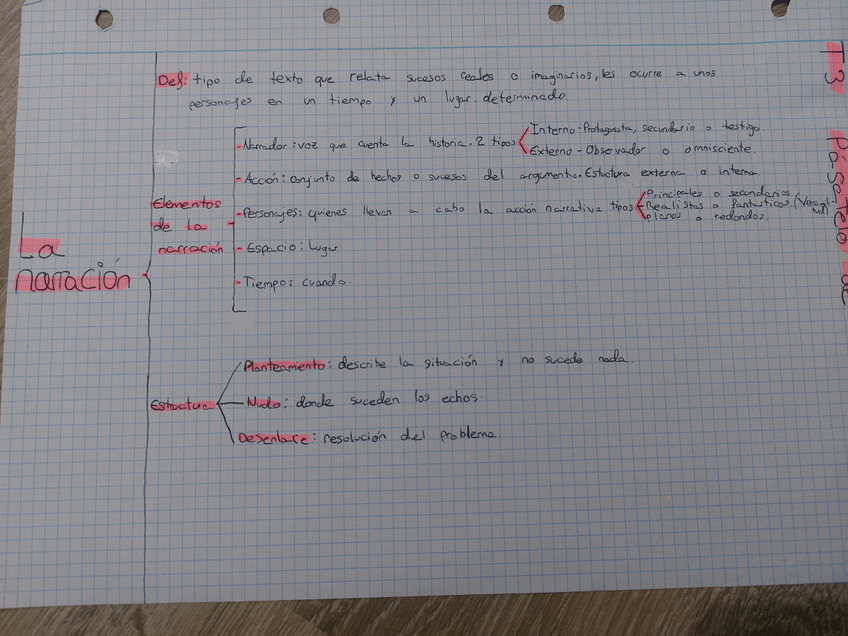 Def: tipo de texto que relata sucesos reales o imaginarios, les ocurre a unos
personajes en un tiempo y un lugar determinado
La
narración
Elementos
de la
narración
- Narrador: voz que cuenta la historia. 2 tipos
Interno - Protagonista, secundario o testigo.
Externo - Observador o omnisciente.
- Acción: conjunto de hechos o sucesos del argumento. Estuctura externa o interna
- Personajes: quienes llevan a cabo la acción narrativa tipos
Principales o secundarios
Realistas o fantasticos
planos o redondos.
- Espacio: Lugar
- Tiempo: cuando.
Estructua
Planteamiento: describe la situación y no sucede nada.
Nudo: donde suceden los echos
Desenlace: resolución del problema.
T 3